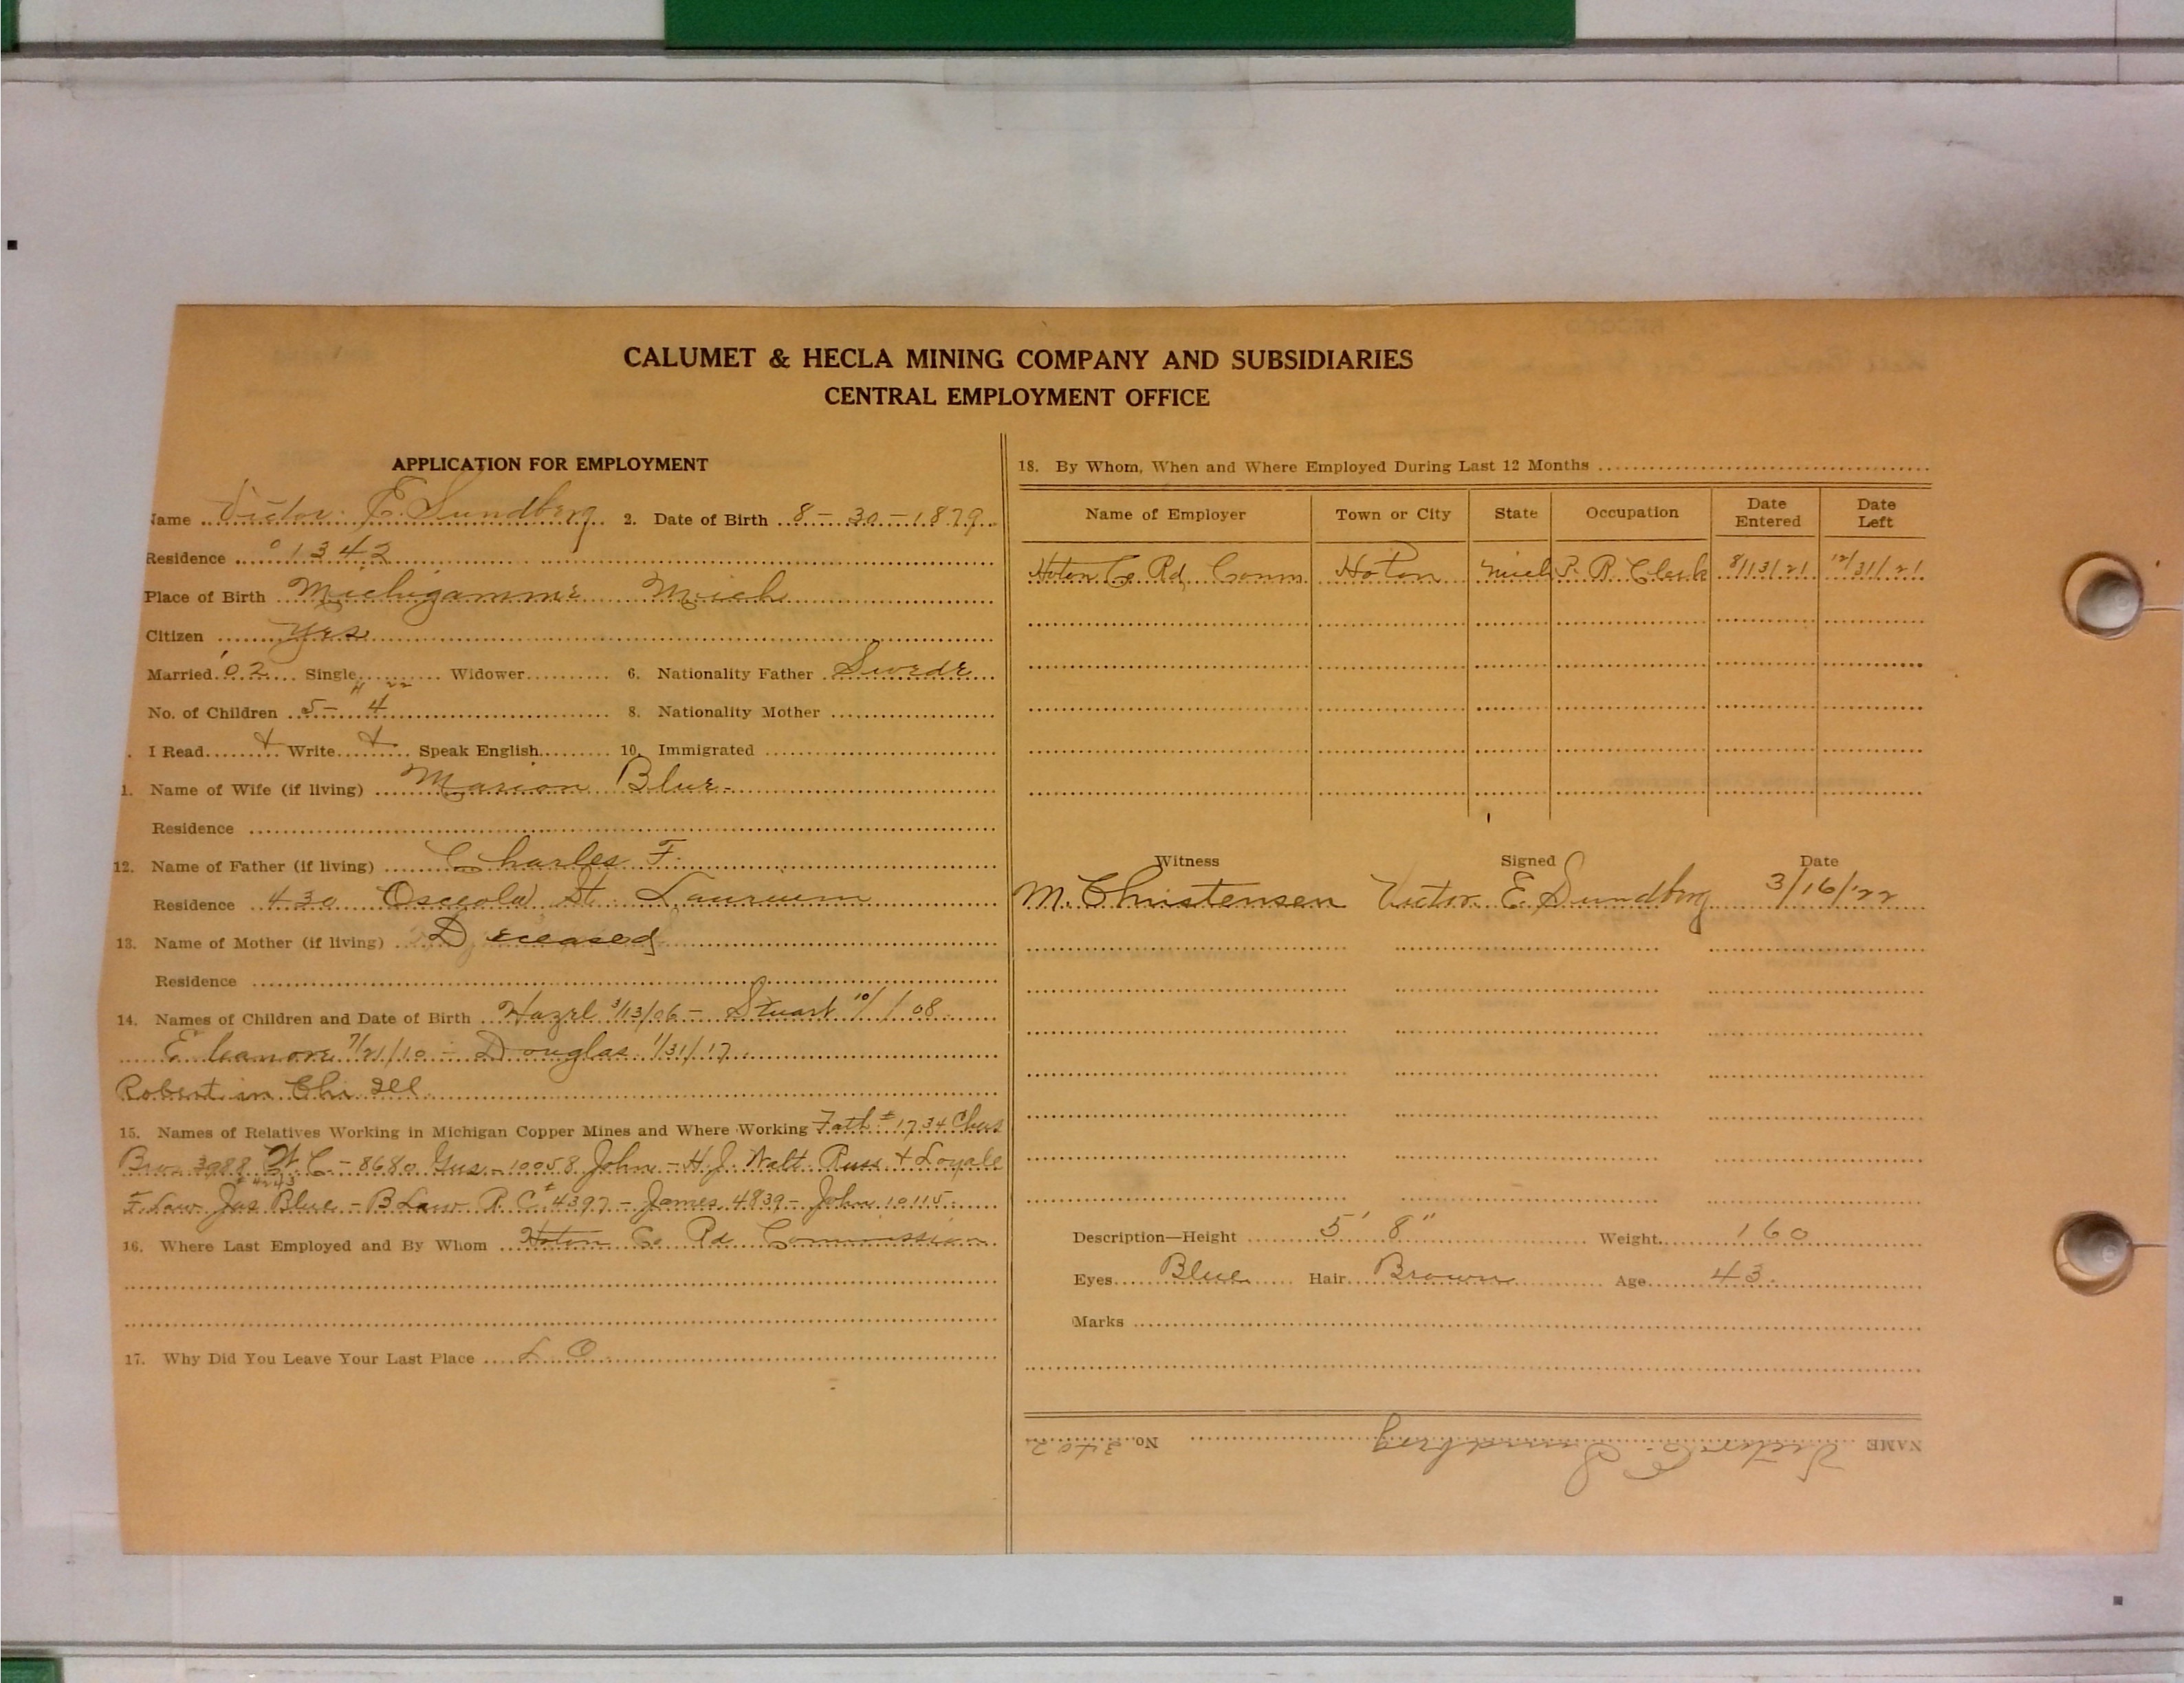 CALUMET & HECLA MINING COMPANY AND SUBSIDIARIES
CENTRAL EMPLOYMENT OFFICE
APPLICATION FOR EMPLOYMENT
Name Victor E. Sundberg 2. Date of Birth 8-30-1879
Residence 01342
Place of Birth Michigamme Mich
Citizen Yes
Married '02 Single Widower 6. Nationality Father Swede
No. of Children 5- 4 8. Nationality Mother
I Read + Write + Speak English 10. Immigrated
1. Name of Wife (if living) Marion Blue
Residence
12. Name of Father (if living) Charles F.
Residence 430 Osceola St. Laurium
13. Name of Mother (if living) Deceased
Residence
14. Names of Children and Date of Birth Hazel 3/13/06 - Stuart 10/1/08
Eleanore 7/21/10 - Douglas 1/31/17
Robert in Chi Ill
15. Names of Relatives Working in Michigan Copper Mines and Where Working Fath #1734 Chas
Bro 3988 W.C - 8680 Gus - 10058 John - H.J. Walt Russ + Loyale
#4243
F. Law Jas Blue - B Law R.C #4397 - James 4839 - John 10115
16. Where Last Employed and By Whom Hoton Co Rd Commission
17. Why Did You Leave Your Last Place L O
18. By Whom, When and Where Employed During Last 12 Months
Name of Employer Town or City State Occupation Date Entered Date Left
Hoton Co Rd Comm Hoton Mich P. R. Clerk 8/13/21 12/31/21
Witness Signed Date
M. Christensen Victor E. Sundberg 3/16/22
Description—Height 5' 8" Weight 160
Eyes Blue Hair Brown Age 43
Marks
NAME Victor E. Sundberg No. 3402